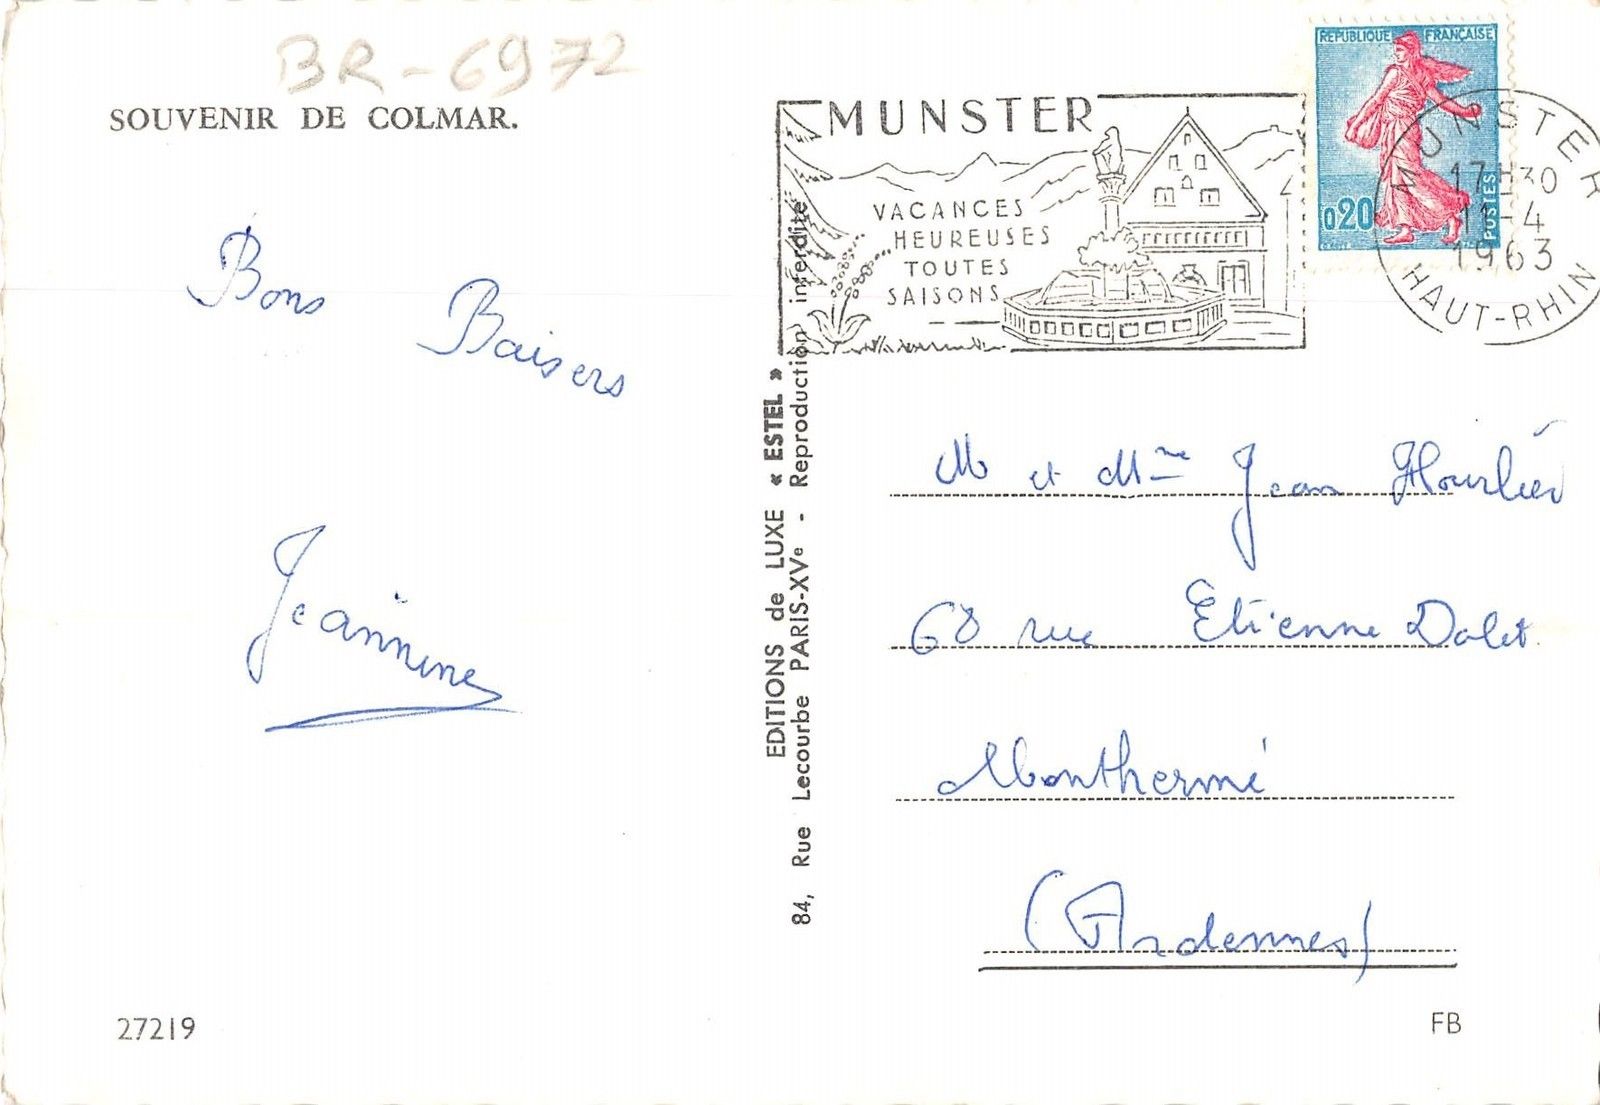 BR-6972
SOUVENIR DE COLMAR.
Bons Baisers
Jeannine
27219
EDITIONS de LUXE « ESTEL »
84, Rue Lecourbe PARIS-XVe - Reproduction interdite
MUNSTER
VACANCES
HEUREUSES
TOUTES
SAISONS
REPUBLIQUE FRANÇAISE
0,20
POSTES
MUNSTER
17H30
11-4
1963
HAUT-RHIN
M et Mme Jean Hourlier
68 rue Etienne Dolet.
Monthermé
(Ardennes)
FB